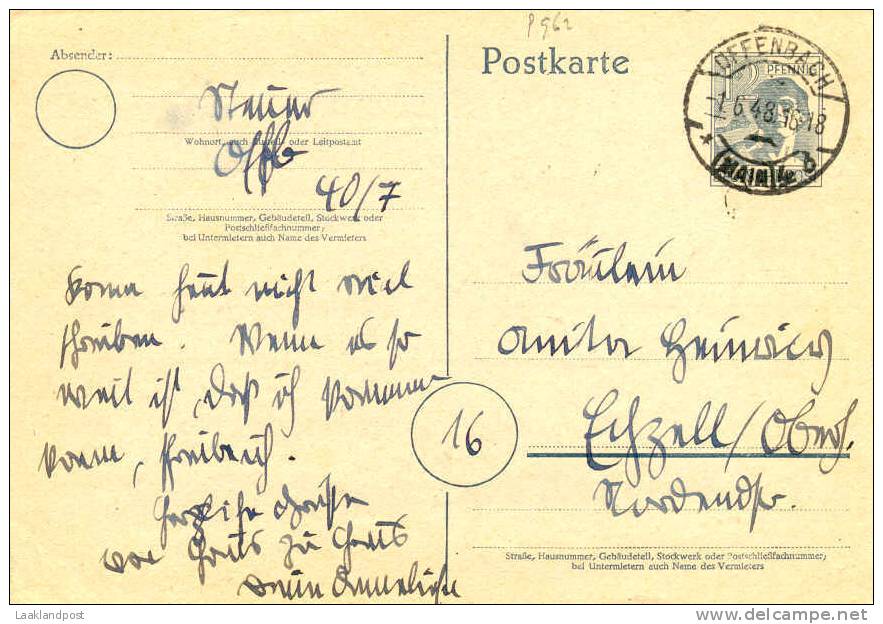 P 962
Absender:
Steuer
Wohnort, auch Zustell- oder Leitpostamt
Offb
40/7
Straße, Hausnummer, Gebäudeteil, Stockwerk oder
Postschließfachnummer;
bei Untermietern auch Name des Vermieters
Kann heut nicht viel
schreiben. Wenn es so
weit ist, daß ich kommen
kann, schreib ich.
Herzliche Grüsse
von Haus zu Haus
Deine Anneliese
Postkarte
PFENNIG
OFFENBACH
1.6.48.16-18
(MAIN) 1
b
Fräulein
Anita Heinrich
16
Echzell / Oberh.
Nordendstr.
Straße, Hausnummer, Gebäudeteil, Stockwerk oder Postschließfachnummer;
bei Untermietern auch Name des Vermieters
Laaklandpost
delcampe.net